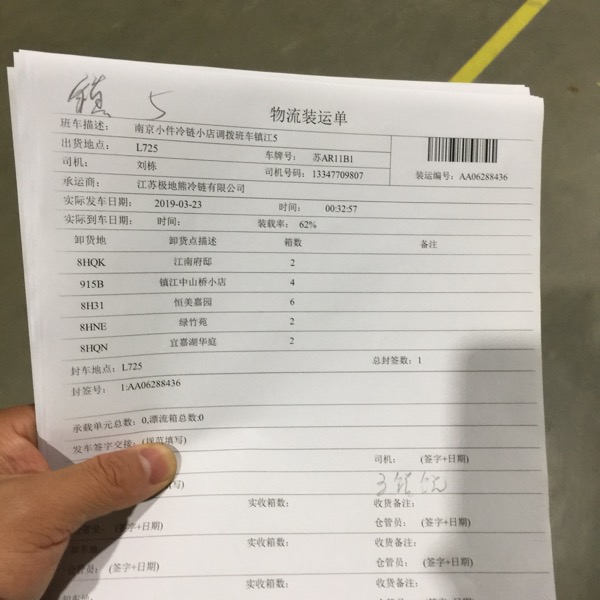 5
物流装运单
班车描述： 南京小件冷链小店调拨班车镇江5
出货地点： L725 车牌号： 苏AR11B1
司机： 刘栋 司机号码：13347709807 装运编号：AA06288436
承运商： 江苏极地熊冷链有限公司
实际发车日期： 2019-03-23 时间： 00:32:57
实际到车日期： 时间： 装载率： 62%
卸货地 卸货点描述 箱数 备注
8HQK 江南府邸 2
915B 镇江中山桥小店 4
8H31 恒美嘉园 6
8HNE 绿竹苑 2
8HQN 宜嘉湖华庭 2
封车地点：L725 总封签数：1
封签号： 1:AA06288436
承载单元总数：0,漂流箱总数:0
发车签字交接：(规范填写)
司机： (签字+日期)
写)
实收箱数： 收货备注：
管员： (签字+日期) 仓管员： (签字+日期)
实收箱数： 收货备注：
仓管员： (签字+日期) 仓管员： (签字+日期)
实收箱数： 收货备注：